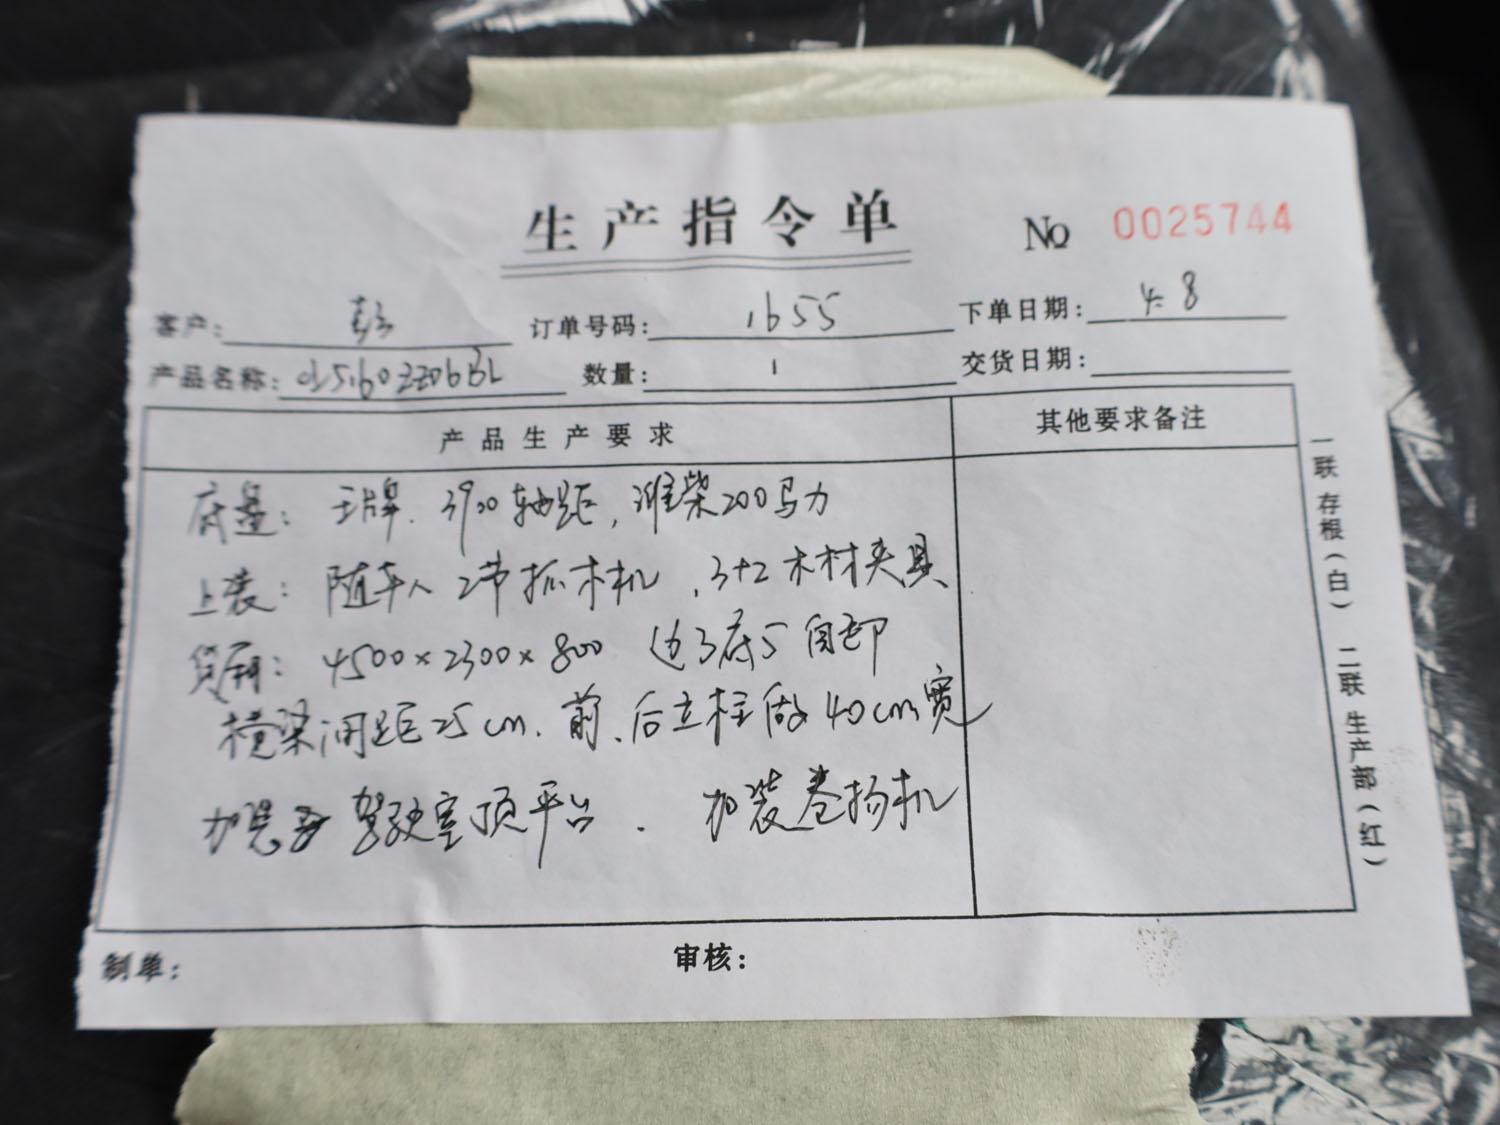 生产指令单 № 0025744
客户: 彭 订单号码: 1655 下单日期: 4.8
产品名称: 数量: 1 交货日期:
产品生产要求 其他要求备注
底盘: 王牌. 3900轴距, 潍柴200马力
上装: 随车人 2节抓木机, 3+2木材夹具
货厢: 4500×2300×800 边3底5 自卸
横梁间距25cm. 前、后立柱做40cm宽
加装 驾驶室顶平台. 加装卷扬机
制单: 审核:
一联存根(白) 二联生产部(红)